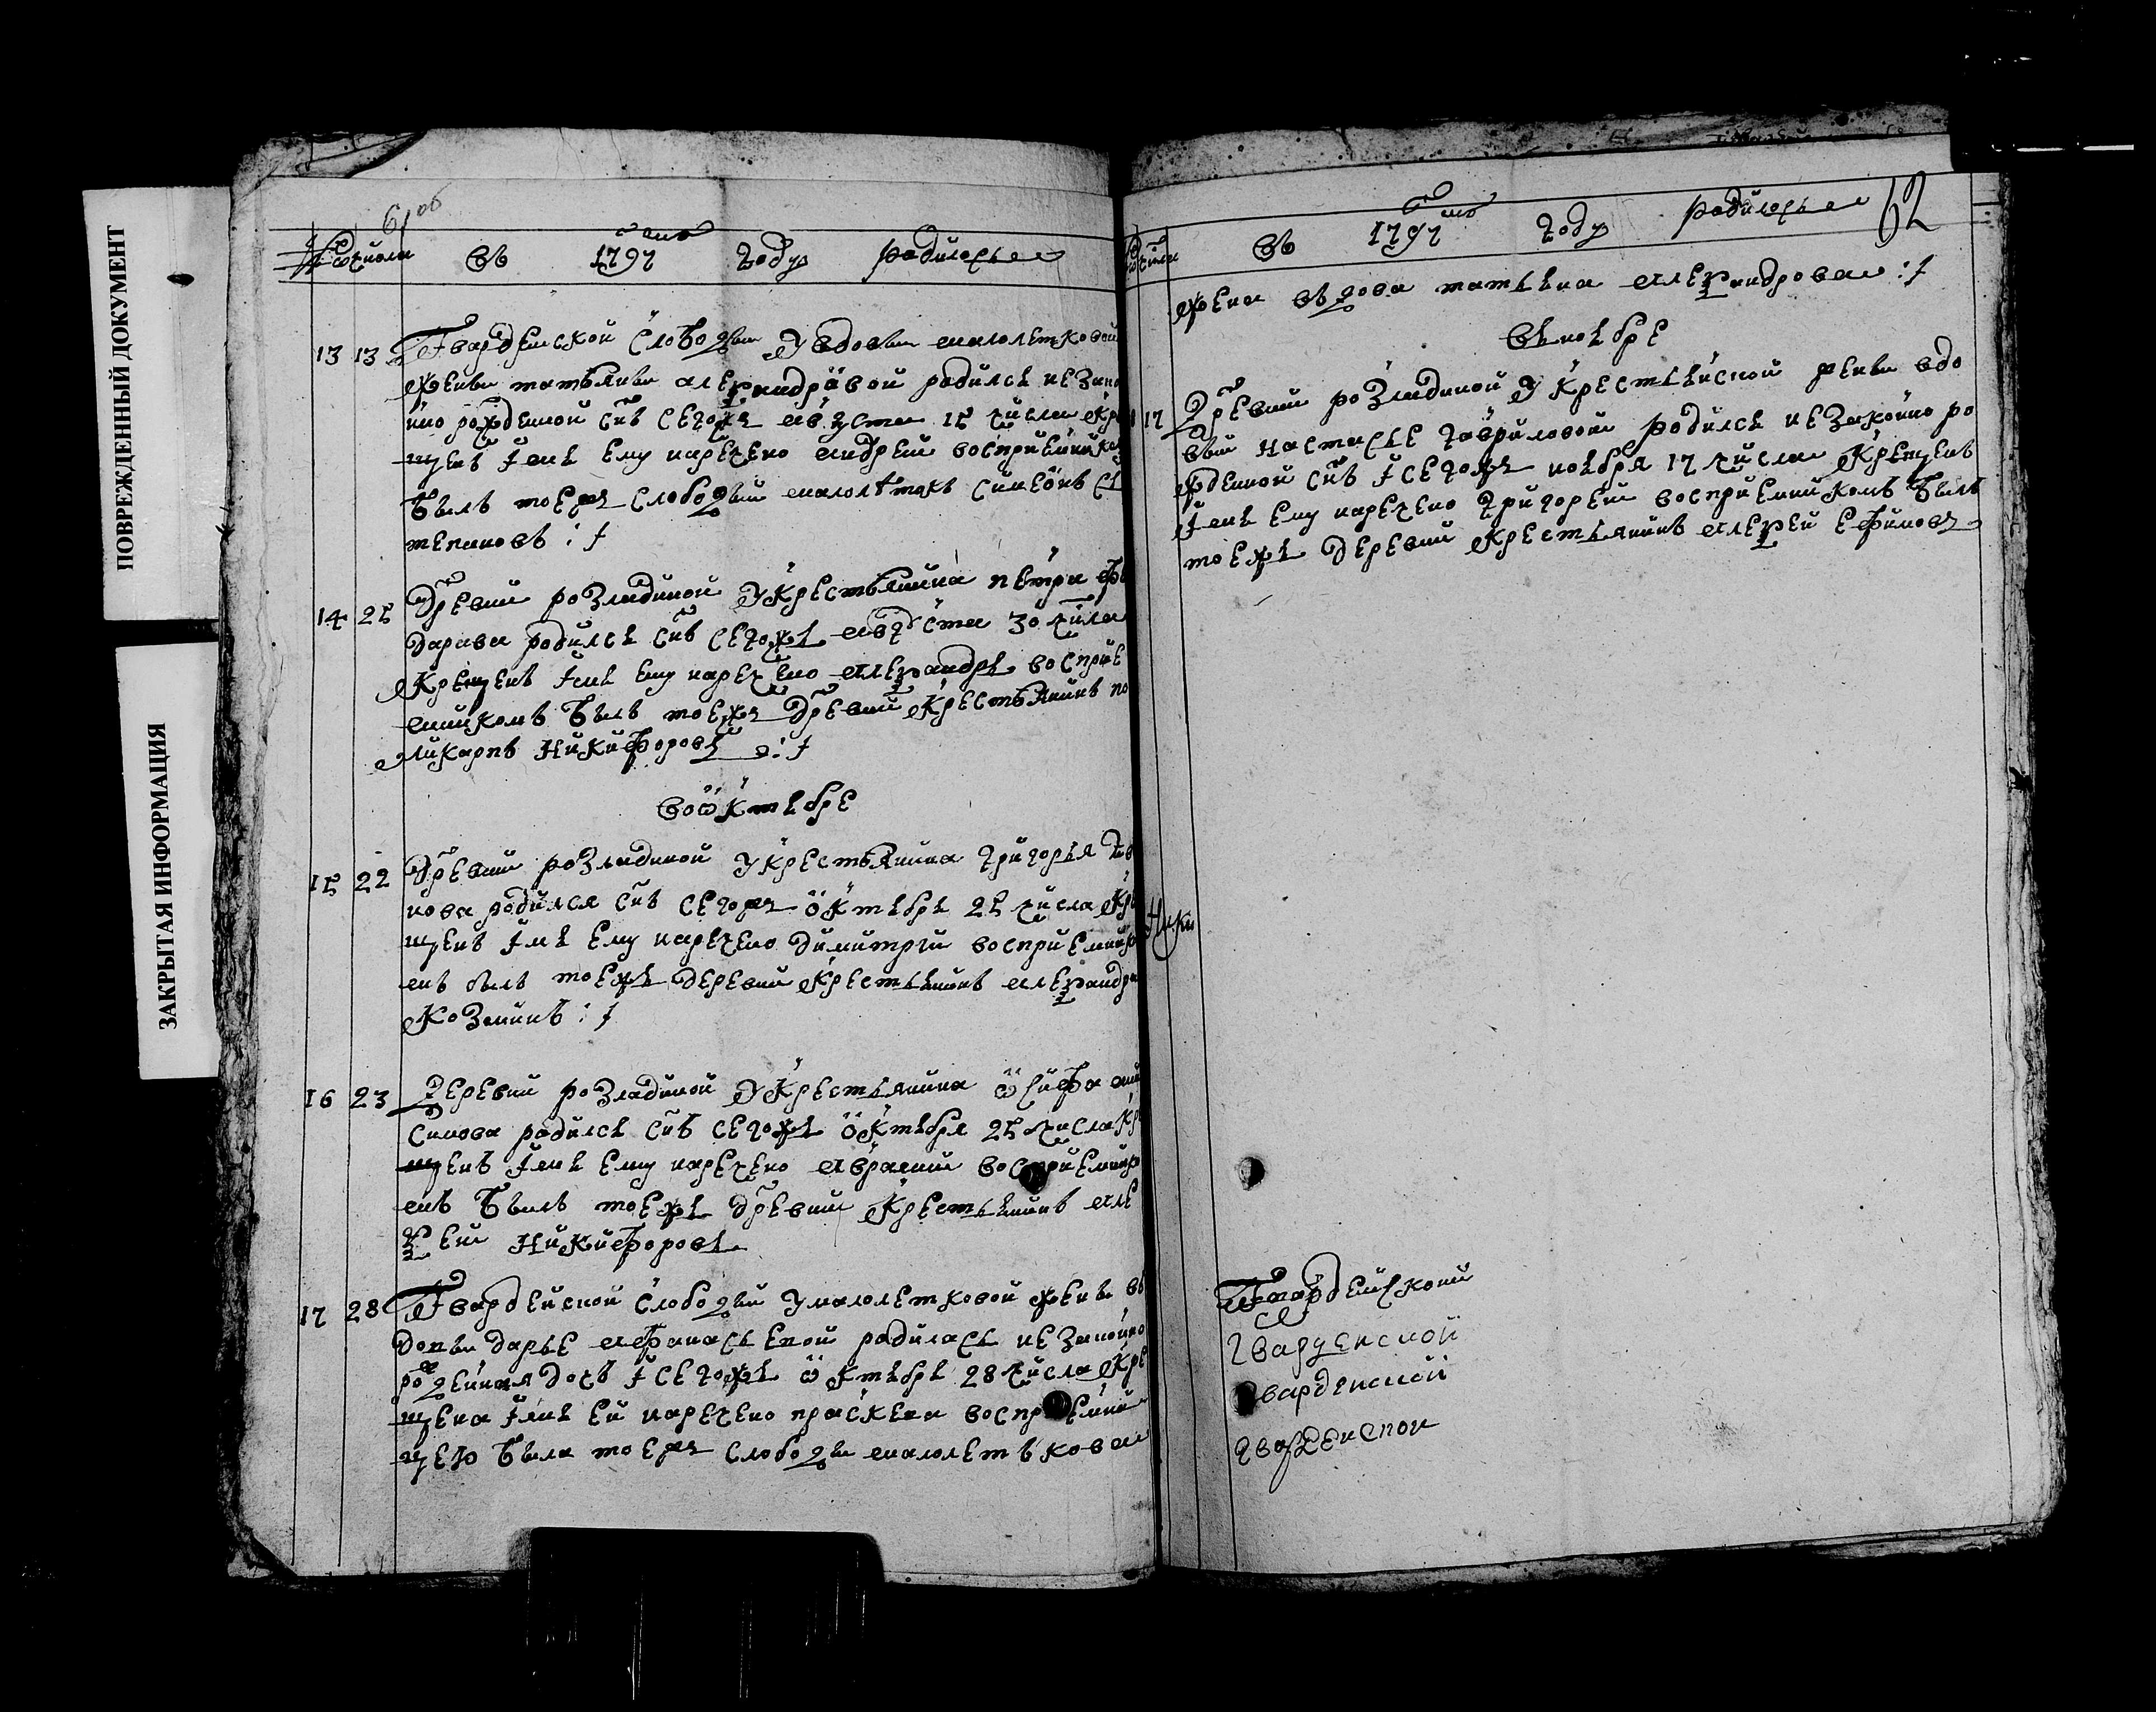 ПОВРЕЖДЕННЫЙ ДОКУМЕНТ
ЗАКРЫТАЯ ИНФОРМАЦИЯ
61 об
числа въ 1797 году родилось
13 13 Гвардейской слободы у вдовы малолетковой
жены татьяны алеѯандравой родился незако
нно рожденой снъ сегожъ августа 15 числа кре
щенъ імя ему наречено андрей восприемником
былъ тоежъ слободы малолѣтокъ симеонъ с
тепановъ
14 25 Древни розладиной у крестьянина петра фе
дарава родился снъ сегожъ августа 30 числа
крещенъ імя ему наречено алеѯандръ восприе
мникомъ былъ тоежъ древни крестьянинъ по
ликарпъ никифоровъ
вооктябре
15 22 Древни розладиной у крестьянина григорья
нова родился снъ сегожъ октября 25 числа кре
щенъ імя ему наречено димитрги восприемник
омъ былъ тоежъ деревни крестьянинъ алеѯандръ
козминъ
16 23 Деревни розладиной у крестьянина осифа
симова родился снъ сегожъ октября 25 числа кре
щенъ імя ему наречено авраами восприемник
омъ былъ тоежъ древни крестьянинъ але
ѯей никифоровъ
17 28 Гвардейской слободы у малолетковой жены в
довы дарье афанасьевой родилась незаконно
рожденная дочь сегожъ октября 28 числа кре
щена імя ей наречено праскева восприемни
цею была тоежъ слободы малолетъковая
62
числа въ 1797 году родилось
жена въдова татьяна алеѯандровая
въноябре
17 Древни розладиной у крестьянской жены вдо
вы настасье гавриловой родился незаконно ро
жденной снъ сегожъ ноября 17 числа крещенъ
імя ему наречено григорей восприемникомъ былъ
тоежъ деревни крестьянинъ алеѯей ефимовъ
Ники
Гвардейской
гварденской
гварденской
гварденской